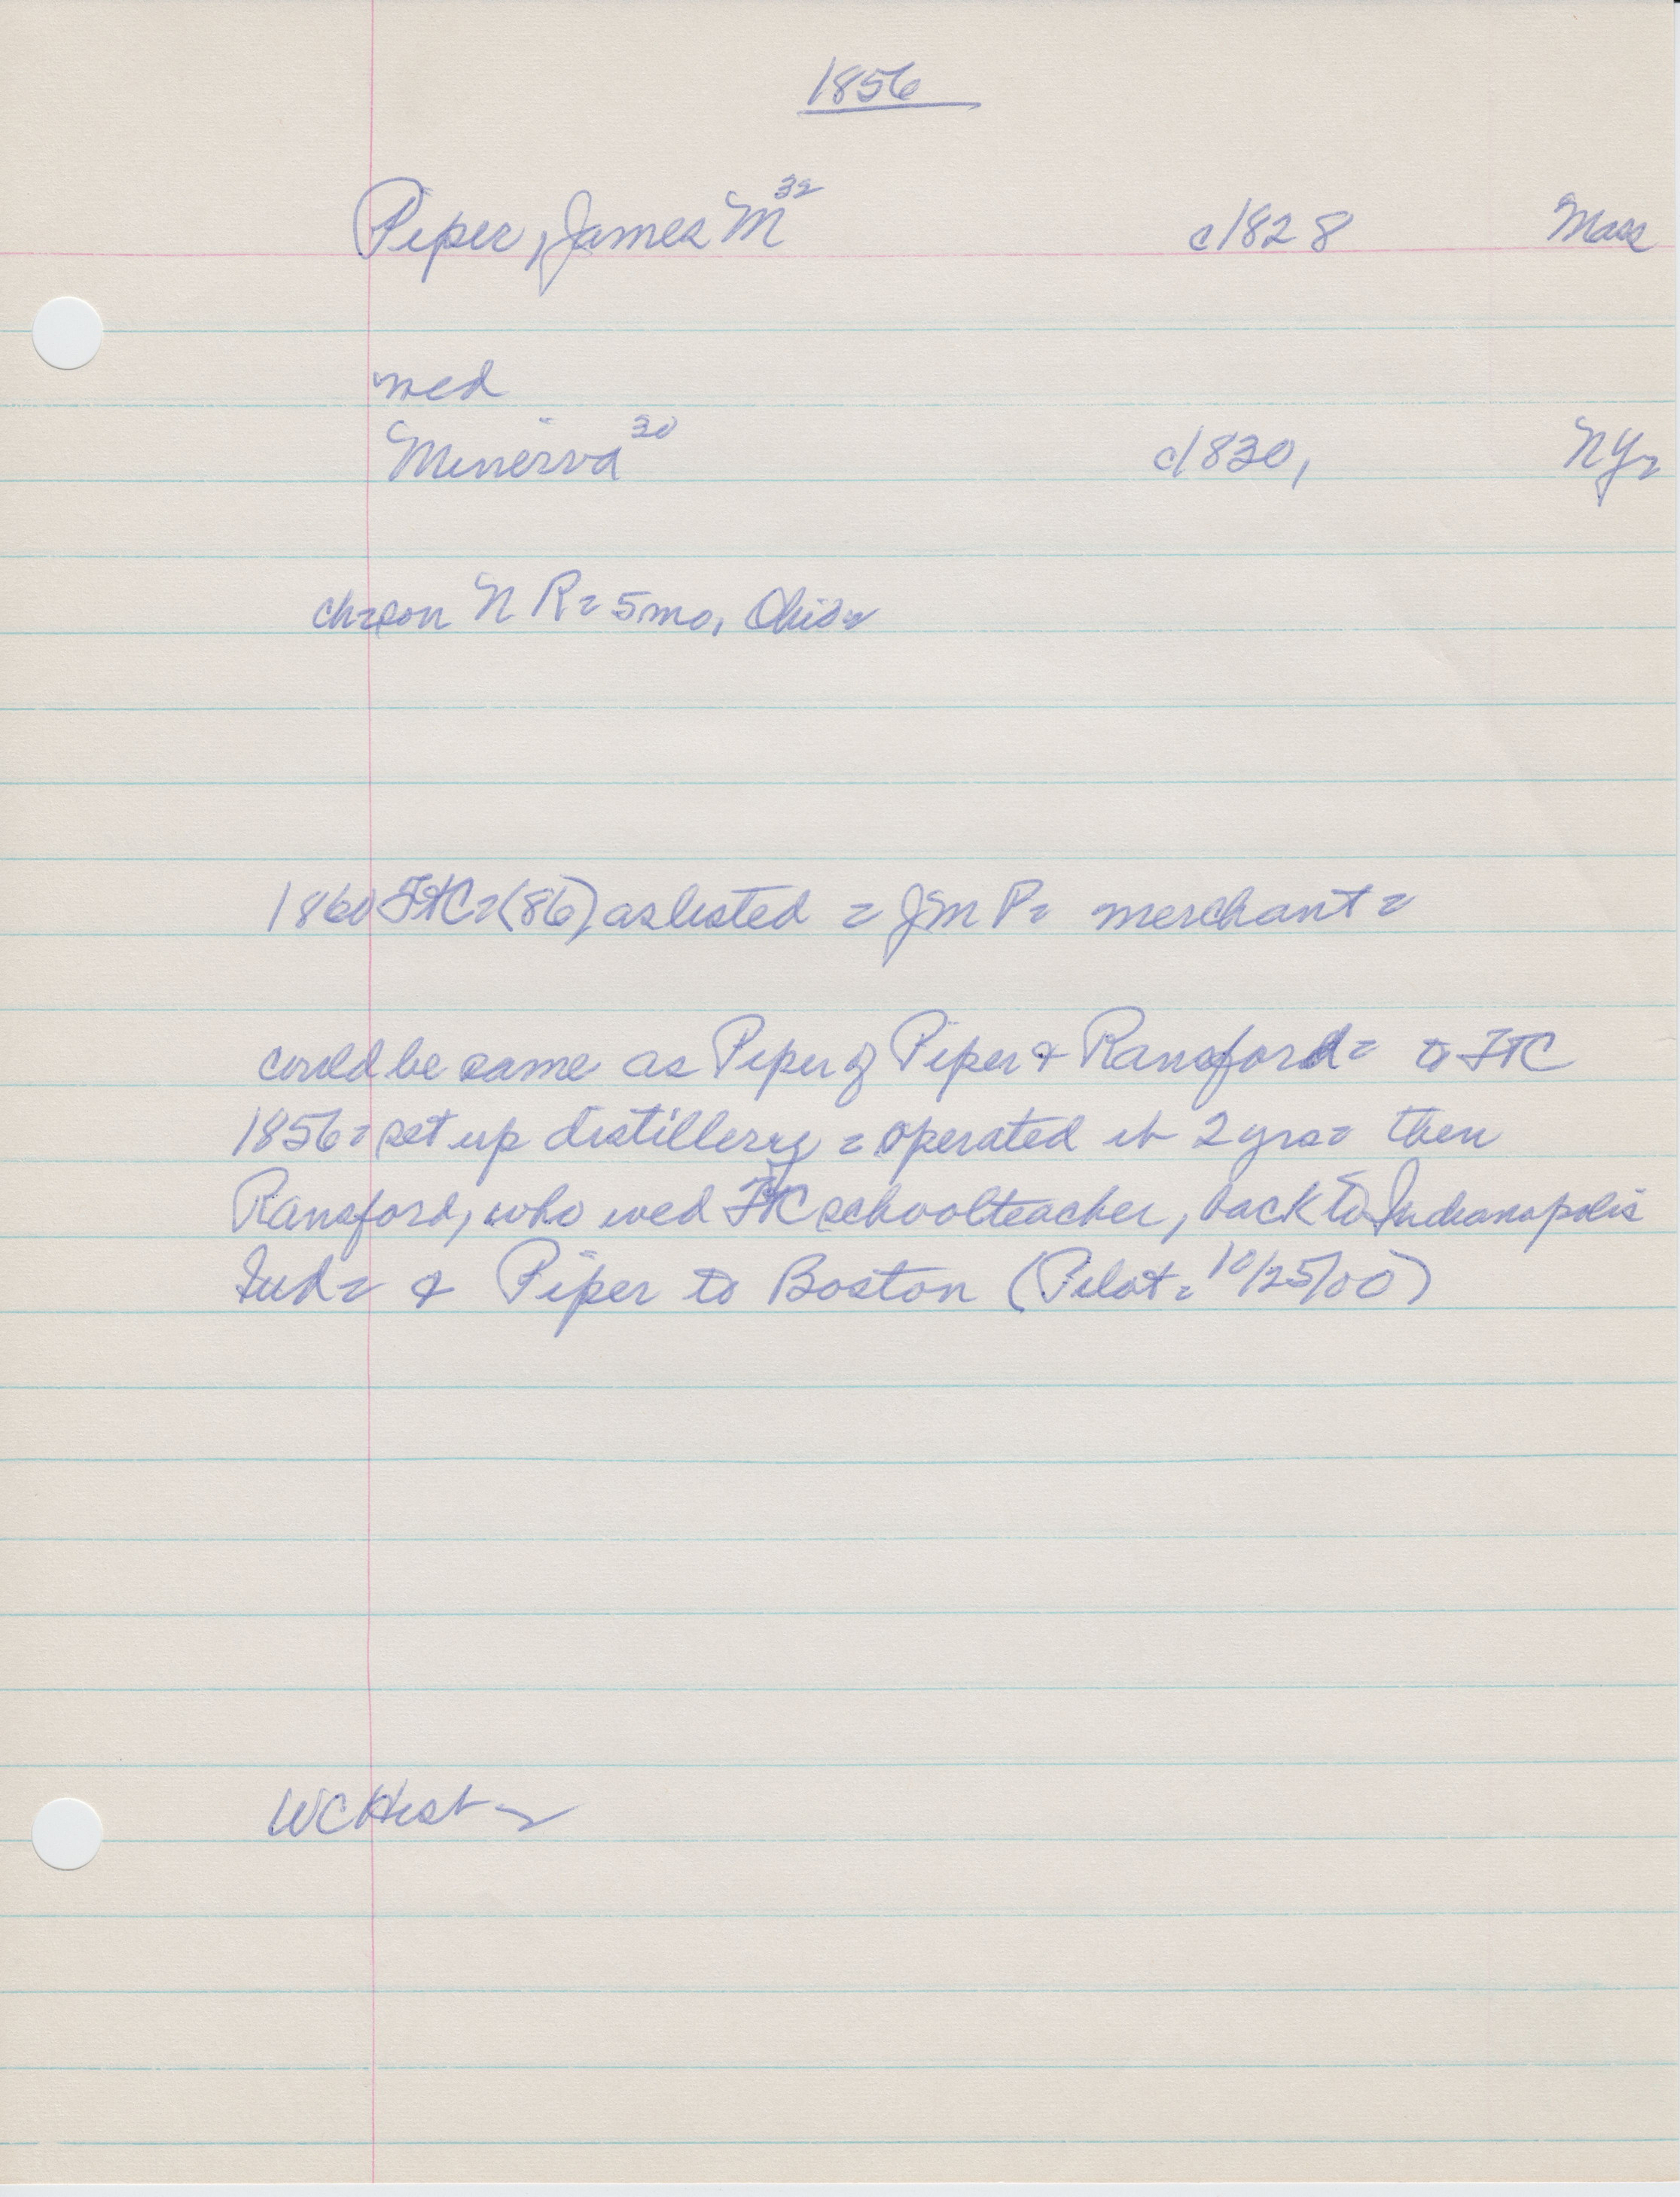 1856
Piper, James M 32 c1828 Mass
wed
Minerva 30 c1830, NY=
ch=son N R= 5mo, Ohio=
1860 FTC=(86) as listed = JM P= merchant=
could be same as Piper of Piper & Ransford= to FTC
1856= set up distillery = operated it 2 yrs= then
Ransford, who wed FTC schoolteacher, back to Indianapolis
Ind= & Piper to Boston (Pilot= 10/25/00)
WC Hist -